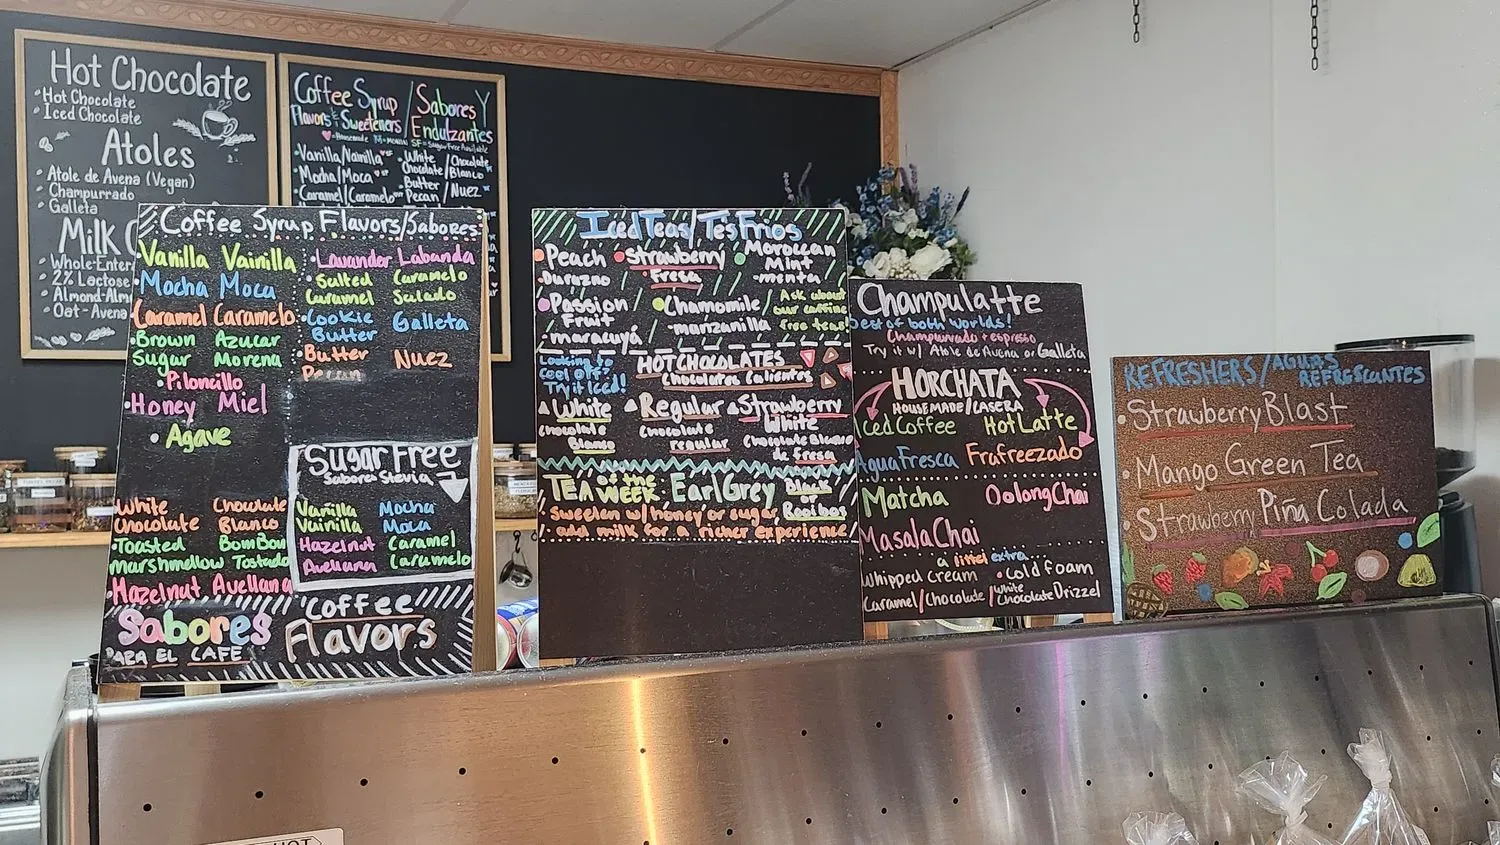 Hot Chocolate
Hot Chocolate
Iced Chocolate
Atoles
Atole de Avena (Vegan)
Champurrado
Galleta
Milk
Whole-Enter
2% Lactose
Almond-Alm
Oat-Avena
Coffee Syrup / Sabores Y
Flavors & Sweeteners / Endulzantes
Vanilla/Vainilla
Mocha/Moca
Caramel/Caramelo
White Chocolate / Chocolate Blanco
Butter Pecan / Nuez
Coffee Syrup Flavors/Sabores
Vanilla Vainilla
Mocha Moca
Caramel Caramelo
Brown Azucar
Sugar Morena
Piloncillo
Honey Miel
Agave
White Chocolate
Chocolate Blanco
Toasted BomBon
Marshmellow Tostado
Hazelnut Avellana
Lavander Labanda
Salted Caramelo
Caramel Salado
Cookie
Butter Galleta
Butter
Pecan Nuez
Sugar Free
Sabores Stevia
Vanilla Mocha
Vainilla Moca
Hazelnut Caramel
Avellana Caramelo
Sabores
PARA EL CAFE
Coffee
Flavors
Iced Teas/Tes Frios
Peach
Durazno
Strawberry
Fresa
Moroccan
Mint
menta
Passion
Fruit
maracuyá
Chamomile
manzanilla
Ask about
our caffine
free teas!
Looking to
cool off?
Try it Iced!
HOT CHOCOLATES
Chocolates Calientes
White
Chocolate
Blanco
Regular
Chocolate
regular
Strawberry
White
Chocolate Blanco
de fresa
TEA OF THE WEEK: Earl Grey
Black
or
Rooibos
Sweeten w/ honey or sugar,
add milk for a richer experience
Champulatte
best of both worlds!
Champurrado + espresso
Try it w/ Atole de Avena or Galleta
HORCHATA
HOUSEMADE/CASERA
Iced Coffee Hot Latte
Agua Fresca Frafreezado
Matcha Oolong Chai
Masala Chai
a littel extra...
Whipped Cream Cold foam
Caramel/Chocolate/White Chocolate Drizzel
REFRESHERS/AGUAS
REFRESCANTES
Strawberry Blast
Mango Green Tea
Strawberry Piña Colada
HOT